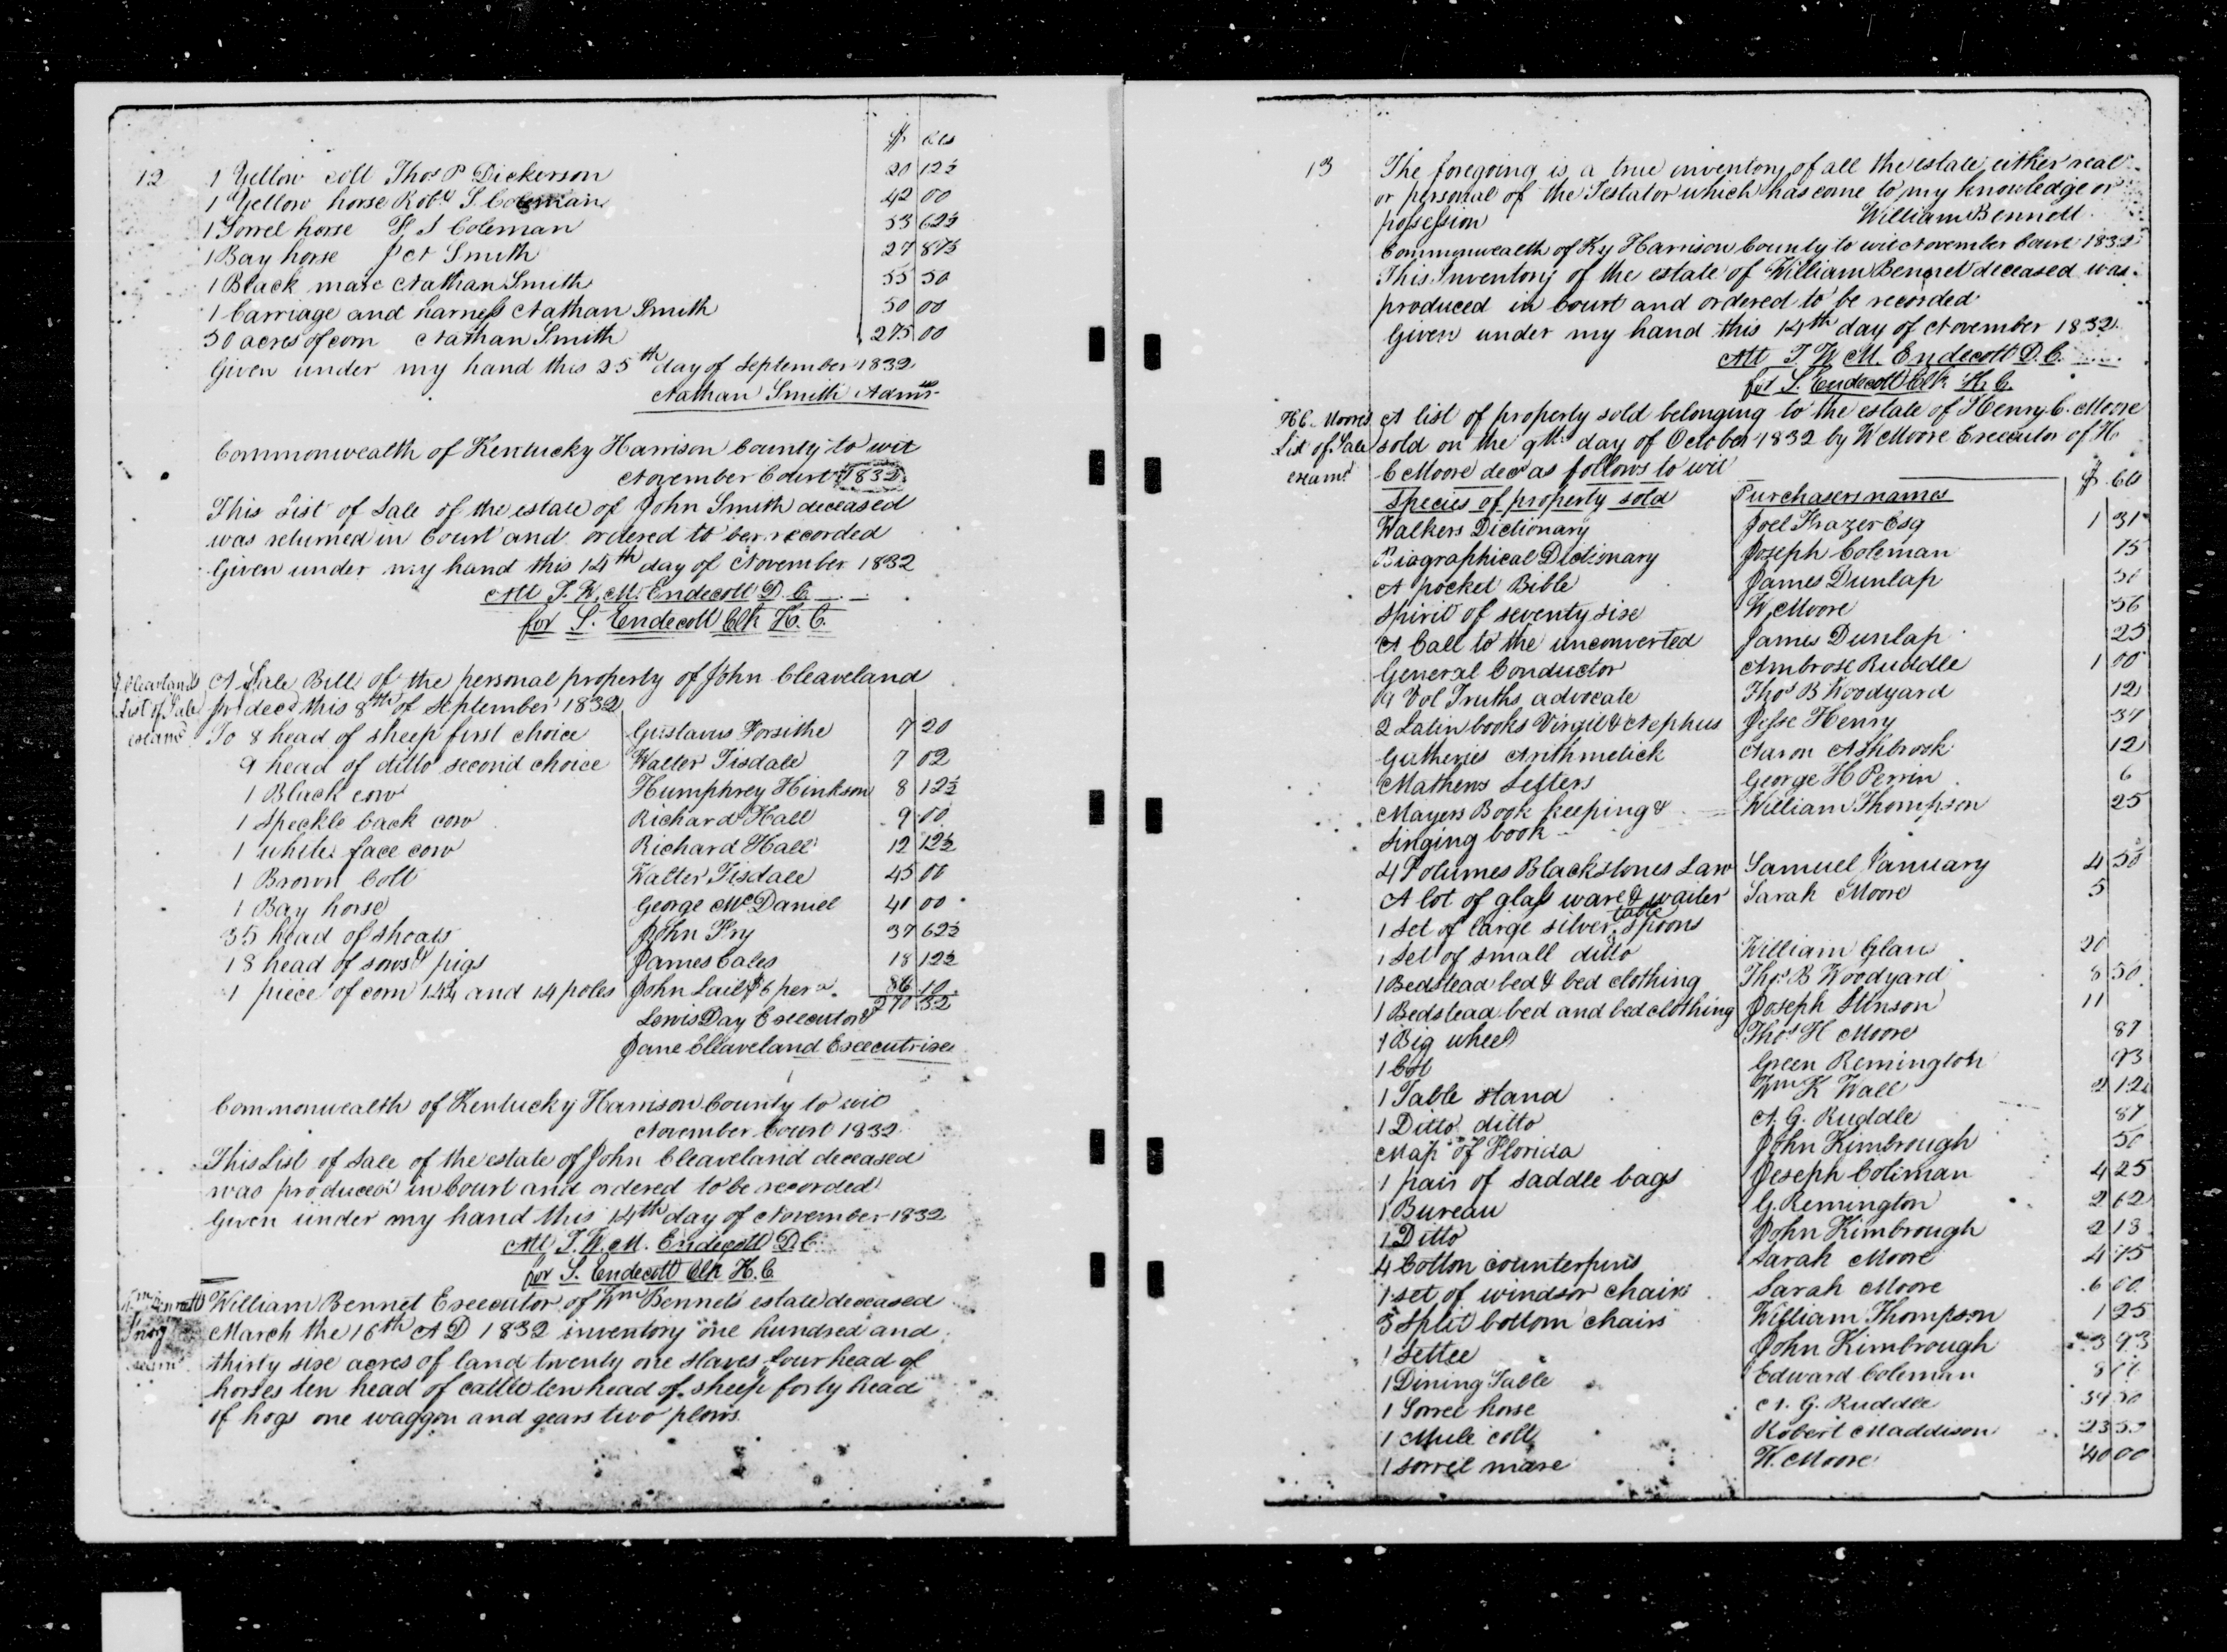 $ cts
12 1 Yellow colt Thos P Dickerson 20 12½
1 Yellow horse Robt S. Coleman 42 00
1 Sorrel horse F S Coleman 53 62½
1 Bay horse J N Smith 27 87½
1 Black mare Nathan Smith 55 50
1 Carriage and harness Nathan Smith 50 00
50 acres of corn Nathan Smith 275 00
Given under my hand this 25th day of September 1832
Nathan Smith Admr
Commonwealth of Kentucky Harrison County to wit
November Court 1832
This List of Sale of the estate of John Smith deceased
was returned in Court and ordered to be recorded
Given under my hand this 14th day of November 1832
Att T. W. M. Endecott D. C.
for S. Endecott Clk H. C.
J Cleavlands A Sale Bill of the personal property of John Cleaveland
List of Sale decd this 8th of September 1832
To 8 head of sheep first choice Gustavus Forsithe 7 20
9 head of ditto second choice Walter Tisdale 7 02
1 Black cow Humphrey Hinkson 8 12½
1 Speckle back cow Richard Hall 9 00
1 white face cow Richard Hall 12 12½
1 Brown Colt Walter Tisdale 45 00
1 Bay horse George McDaniel 40 00
35 head of shoats John Fry 37 62½
18 head of sows & pigs James Cales 18 12½
1 piece of corn 14¼ and 14 poles John Lail $6 per a. 86 10
270 32
Lewis Day Executor &
Jane Cleaveland Executrix
Commonwealth of Kentucky Harrison County to wit
November Court 1832
This List of Sale of the estate of John Cleaveland deceased
was produced in Court and ordered to be recorded
Given under my hand this 14th day of November 1832
Att T. W. M. Endecott D. C.
for S. Endecott Clk H. C.
William Bennet Executor of Wm Bennets estate deceased
March the 16th A D 1832 inventory one hundred and
thirty six acres of land twenty one slaves four head of
horses ten head of cattle ten head of sheep forty head
of hogs one waggon and gears two plows
13 The foregoing is a true inventory of all the estate either real
or personal of the Testator which has come to my knowledge or
possession William Bennett
Commonwealth of Ky Harrison County to wit November Court 1832
This Inventory of the estate of William Bennet deceased was
produced in Court and ordered to be recorded
Given under my hand this 14th day of November 1832
Att T W M. Endecott D. C.
for S. Endecott Clk H. C.
H C. Moores A list of property sold belonging to the estate of Henry C. Moore
List of Sale sold on the 9th day of October 1832 by W Moore Executor of H.
examd C Moore decd as follows to wit
$ cts
Species of property sold Purchasers names
Walkers Dictionary Joel Frazer Esq 1 31
Biographical Dictionary Joseph Coleman 75
A pocket Bible James Dunlap 50
Spirit of seventy six W Moore 56
A Call to the unconverted James Dunlap 25
General Conductor Ambrose Ruddle 1 00
Vol Truths advocate Thos B Woodyard 12
2 Latin books Virgil & Nephus Jesse Henry 37
Gutheries Arithmetick Aaron Ashbrook 12
Mathews Letters George H Perrin 6
Mayers Book keeping & William Thompson 25
singing book
4 Volumes Blackstones Law Samuel January 4 50
A lot of glass ware & waiter Sarah Moore 5
1 Set of large silver table spoons
1 Set of small ditto William Glau 20
1 Bedstead bed & bed clothing Thos B Woodyard 8 50
1 Bedstead bed and bed clothing Joseph Stinson 11
1 Big wheel Thos H Moore 87
1 Cot Green Remington 93
1 Table stand Wm K Wall 2 12
1 Ditto ditto A. G. Ruddle 87
Map of Florida John Kimbrough 50
1 pair of saddle bags Joseph Coliman 4 25
1 Bureau G. Remington 2 62
1 Ditto John Kimbrough 2 13
4 Cotton counterpins Sarah Moore 4 75
1 set of windsor chairs Sarah Moore 6 00
5 Split bottom chairs William Thompson 1 25
1 Settee John Kimbrough 3 93
1 Dining Table Edward Coleman
1 Sorrel horse A. G. Ruddle 39 50
1 Mule colt Robert Maddison 23 50
1 sorrel mare W. Moore 40 00